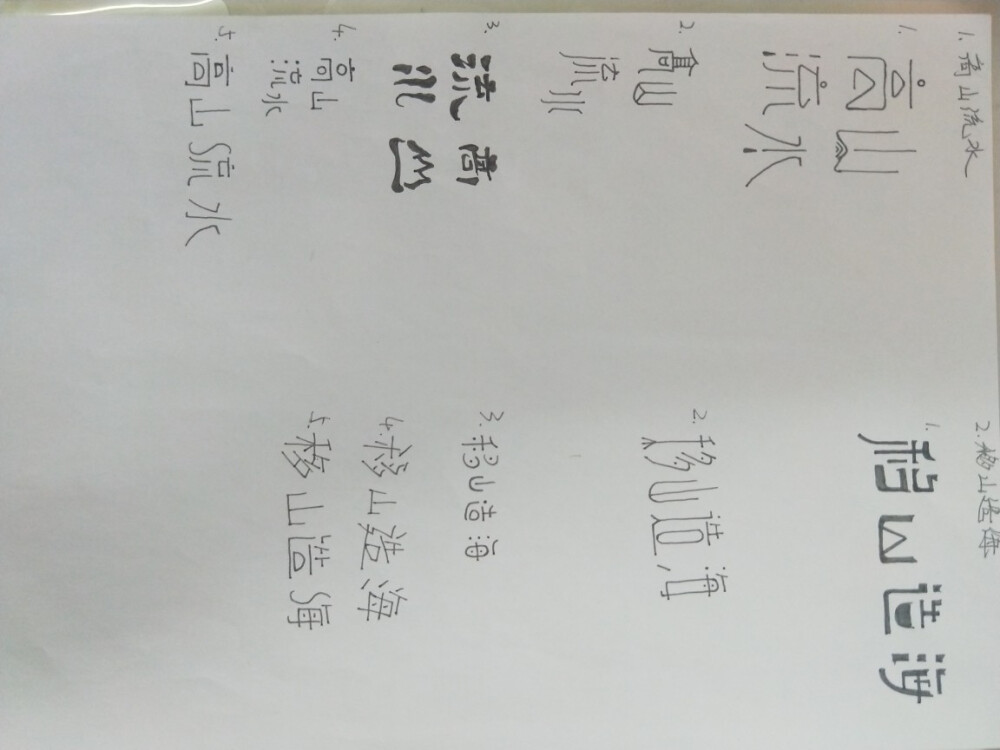 1.高山流水
1.
高山
流水
2.
高山
流水
3.
流高
水山
4.
高山
流水
5.
高山流水
2.移山造海
1.
移山造海
2.
移山造海
3.移山造海
4.移山造海
5.移山造海